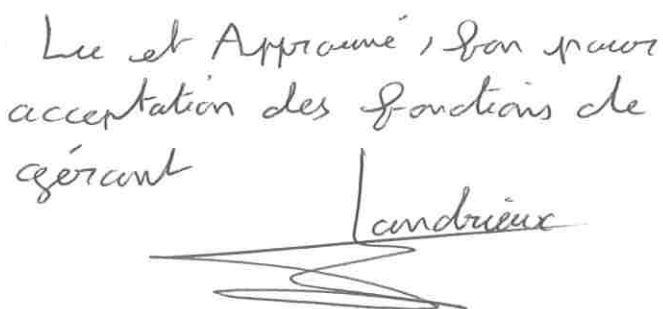 Lu et Approuvé, bon pour
acceptation des fonctions de
gérant
Landrieux